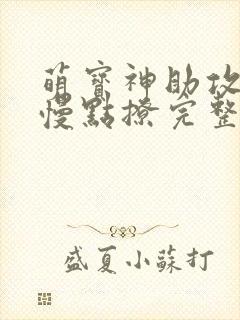 萌寶神助攻
慢點撩完整
盛夏小蘇打